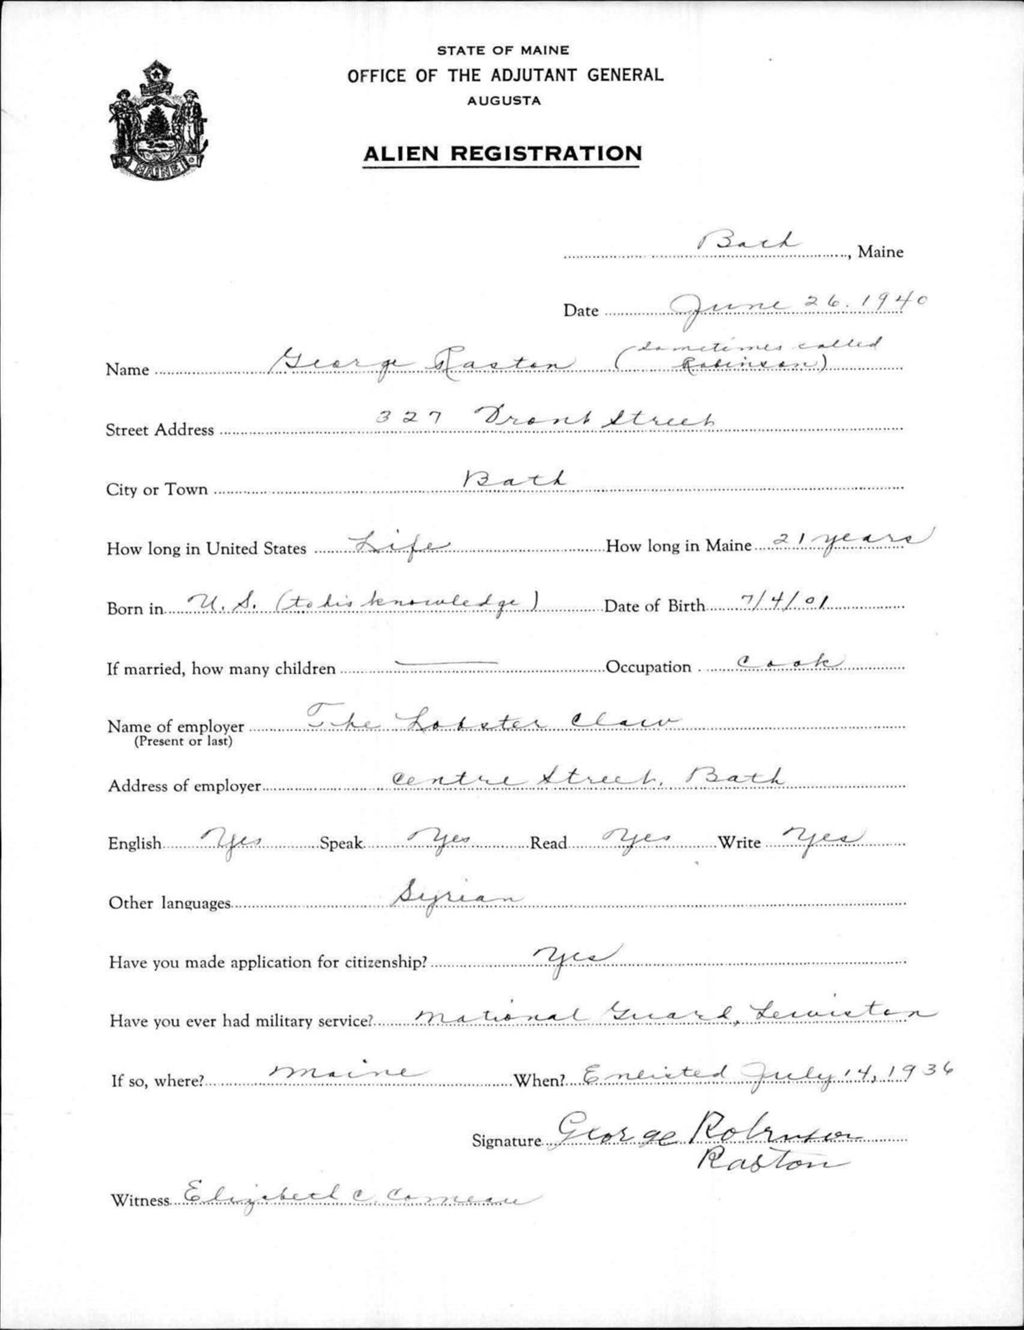 STATE OF MAINE
OFFICE OF THE ADJUTANT GENERAL
AUGUSTA
ALIEN REGISTRATION
MAINE
Bath, Maine
Date June 26. 1940
Name George Raston (sometimes called Robinson)
Street Address 327 Front Street
City or Town Bath
How long in United States Life How long in Maine 21 years
Born in U. S. (to his knowledge) Date of Birth 7/4/01
If married, how many children — Occupation Cook
Name of employer The Lobster Claw
(Present or last)
Address of employer Centre Street, Bath
English Yes Speak Yes Read Yes Write Yes
Other languages Syrian
Have you made application for citizenship? Yes
Have you ever had military service? National Guard, Lewiston
If so, where? Maine When? Enlisted July 14, 1936
Signature George Robinson
Raston
Witness Elizabeth C. Comeau